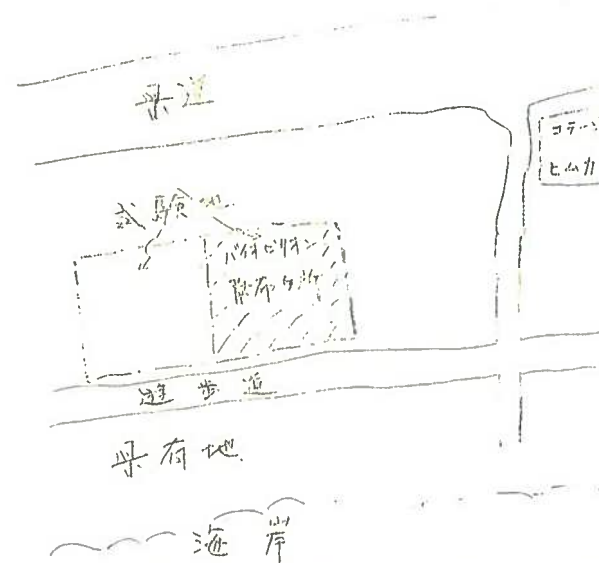 県道
コテージ
ヒムカ
試験地
バイオビリオン
散布ヶ所
遊歩道
県有地
海岸